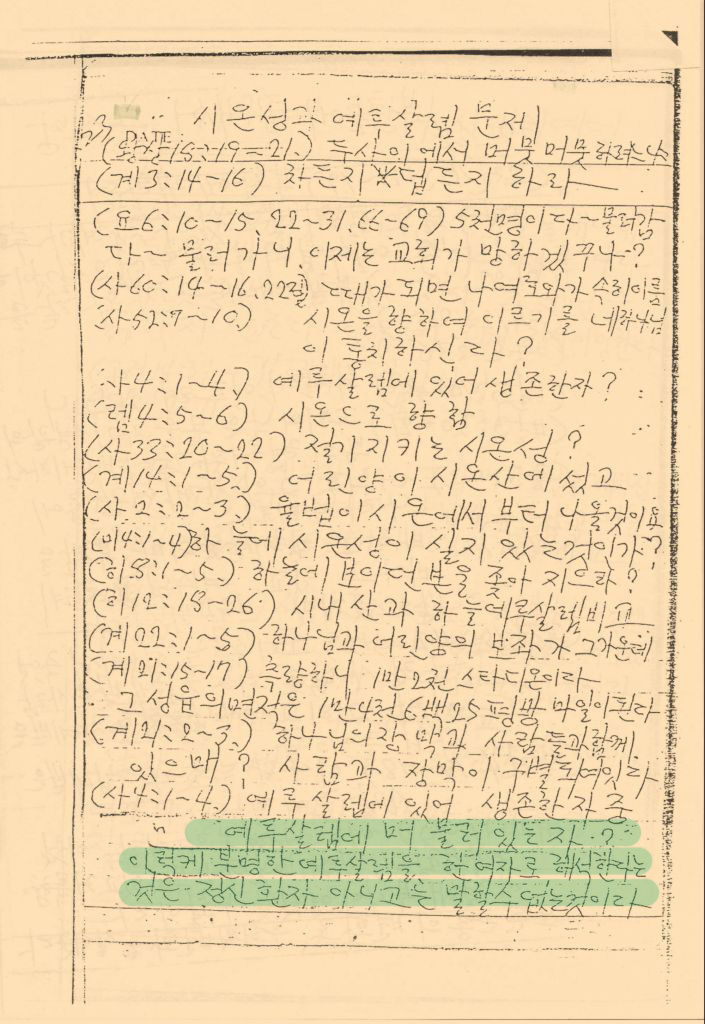 시온성과 예루살렘 문제
DATE
(왕상18:19=21) 두사이에서 머뭇머뭇 하려느냐
(계3:14-16) 차든지 덥든지 하라
(요6:10~15, 22~31, 66-69) 5천명이 다~물러감
다~ 물러가니, 이제는 교회가 망하겠꾸나?
(사60:14~16, 22절) 때가되면 나여호와가 속히이룸
(사52:7~10) 시온을 향하여 이르기를 네하나님
이 통치하신다?
(사4:1~4) 예루살렘에 있어 생존한자?
(렘4:5~6) 시온으로 향함
(사33:20~22) 절기지키는 시온성?
(계14:1~5) 어린양이 시온산에 섰고
(사2:2~3) 율법이 시온에서 부터 나올것이요
(미4:1~4) 하늘에 시온성이 실지 있는것이가?
(히8:1~5) 하늘에 보이던 본을 좇아 지으라?
(히12:18-26) 시내산과 하늘예루살렘비교
(계22:1~5) 하나님과 어린양의 보좌가 그가운데
(계21:15~17) 측량하니 1만2천 스타디온이라
그 성읍의면적은 1만4천6백25평방 마일이된다
(계21:2~3) 하나님의장막과 사람들과함께
있으매? 사람과 장막이 구별되여잇다
(사4:1~4) 예루살렘에 있어 생존한자 중
예루살렘에 머물러 있는자?
이렇케 분명한 예루살렘을 한여자로 해석한다는
것은 정신환자 아니고는 말할수없는것이라